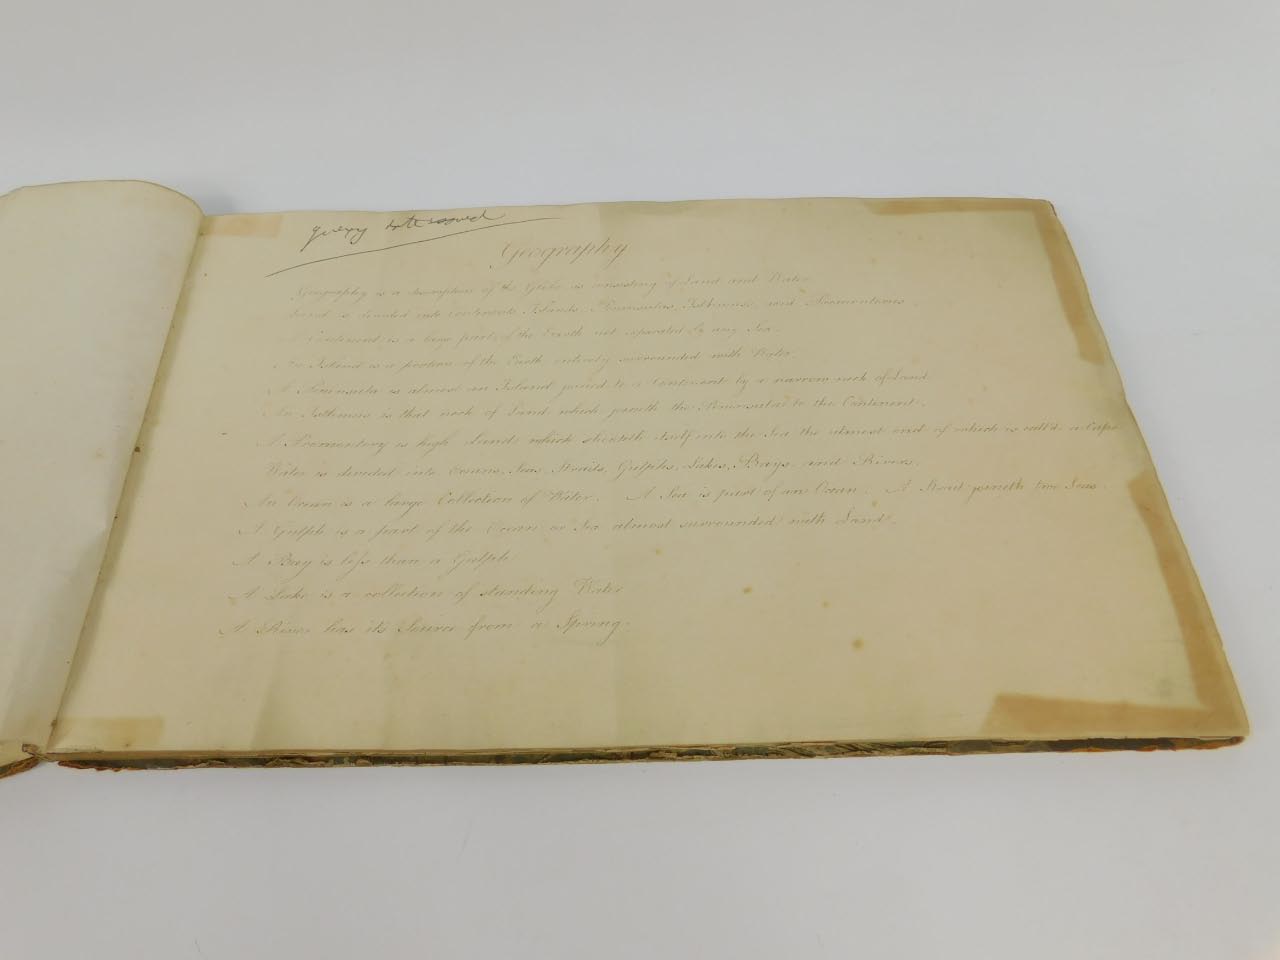 query date issued
Geography
Geography is a description of the Globe as consisting of Land and Water
Land is divided into Continents Islands, Peninsulas, Isthmuses, and Promontories.
A Continent is a large part of the Earth not separated by any Sea.
An Island is a portion of the Earth entirely surrounded with Water.
A Peninsula is almost an Island joined to a Continent by a narrow neck of Land
An Isthmus is that neck of Land which joineth the Peninsula to the Continent.
A Promontory is high Land which shooteth itself into the Sea the utmost end of which is call'd a Cape
Water is divided into Oceans, Seas, Straits, Gulphs, Lakes, Bays, and Rivers.
An Ocean is a large Collection of Water. A Sea is part of an Ocean. A Strait joineth two Seas.
A Gulph is a part of the Ocean or Sea almost surrounded with Land.
A Bay is less than a Gulph
A Lake is a collection of standing Water
A River has its Source from a Spring.